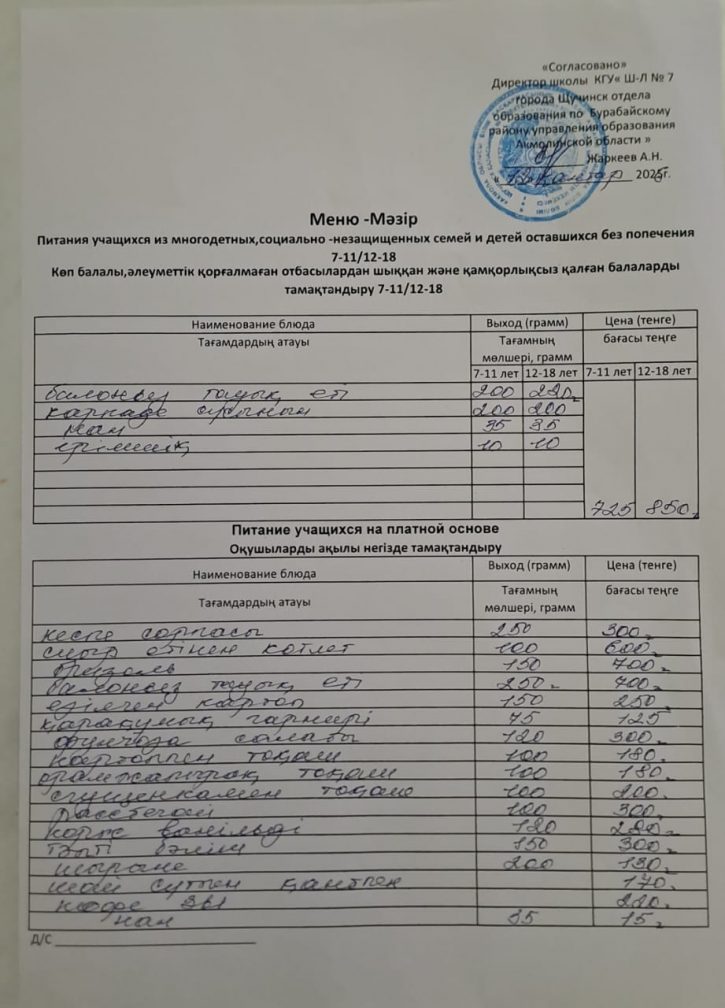 «Согласовано»
Директор школы КГУ« Ш-Л № 7
города Щучинск отдела
образования по Бурабайскому
району управления образования
Акмолинской области »
Жаркеев А.Н.
« 13 » қаңтар 2026г.
Меню -Мәзір
Питания учащихся из многодетных,социально -незащищенных семей и детей оставшихся без попечения
7-11/12-18
Көп балалы,әлеуметтік қорғалмаған отбасылардан шыққан және қамқорлықсыз қалған балаларды
тамақтандыру 7-11/12-18
Наименование блюда Выход (грамм) Цена (тенге)
Тағамдардың атауы Тағамның мөлшері, грамм бағасы теңге
7-11 лет 12-18 лет 7-11 лет 12-18 лет
тауық еті 200 220
каркаде сусыны 200 200
нан 35 35
ірімшік 10 10
725 850
Питание учащихся на платной основе
Оқушыларды ақылы негізде тамақтандыру
Наименование блюда Выход (грамм) Цена (тенге)
Тағамдардың атауы Тағамның мөлшері, грамм бағасы теңге
кеспе сорпасы 250 300
сиыр етінен котлет 100 600
бризоль 150 700
тауық еті 250 700
езілген картоп 150 250
қарақұмық гарнирі 75 125
фунчоза салаты 120 300
картоппен тоқаш 100 180
тоқаш 100 180
сгущенкамен тоқаш 100 200
расстегай 100 300
корж ванильді 120 220
тәтті бәліш 150 300
шырын 200 130
шай сүтпен қантпен 170
кофе 3в1 220
нан 35 15
Д/С